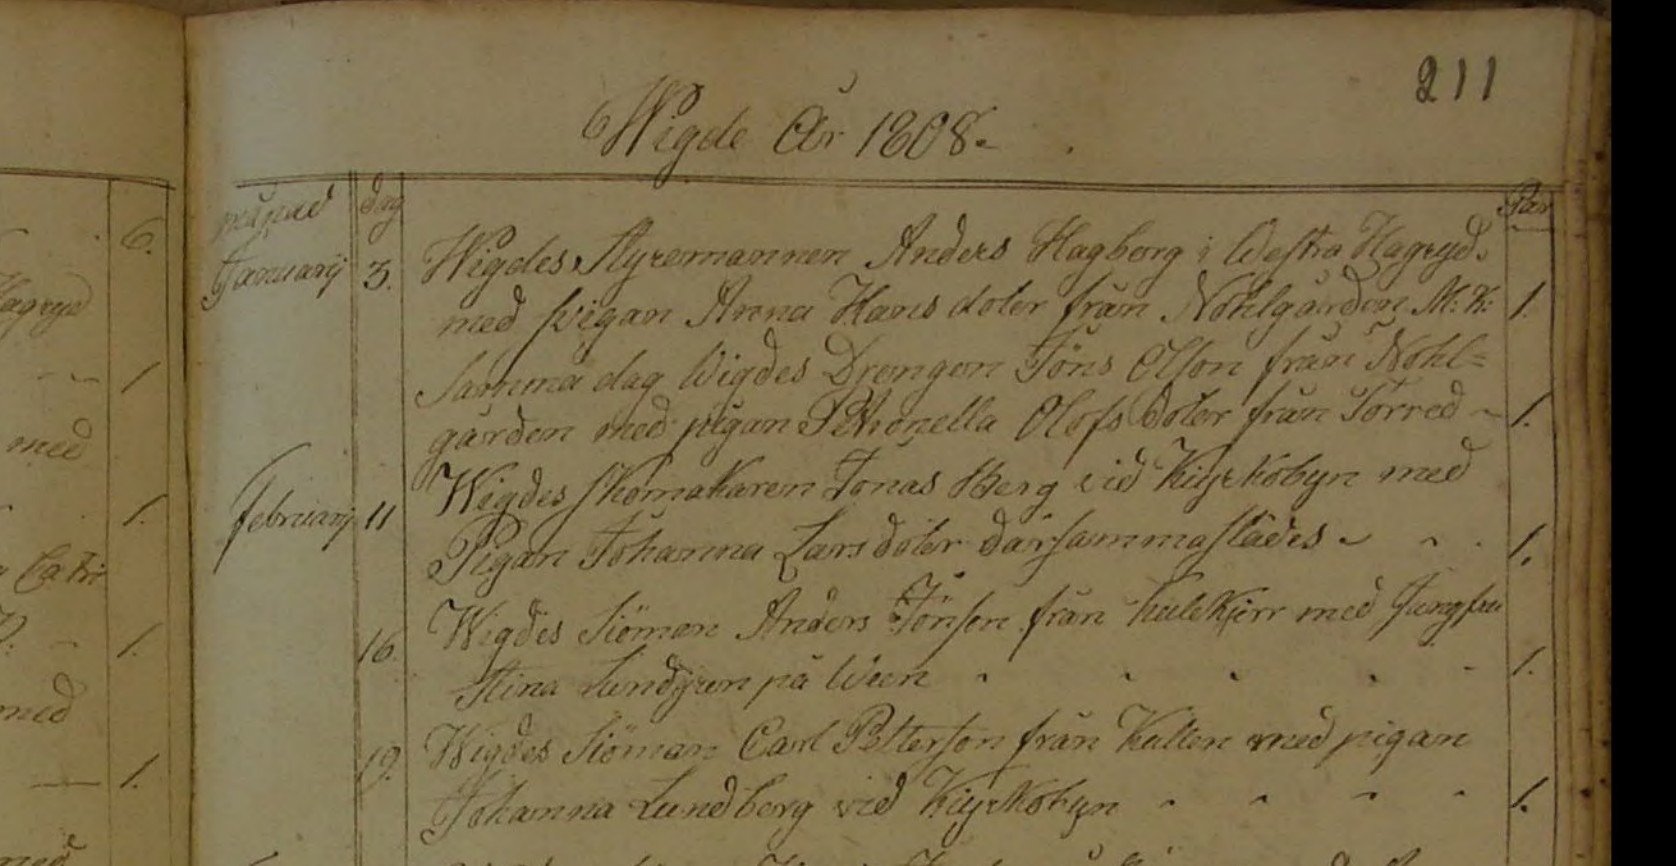 211
Wigde År 1808.
månad dag Par
6.
Januarij 3. Wigdes Styremannen Anders Hagborg i Westra Hagryd.
Hagryd
med pigan Anna Hans doter från Nohlgården M: K: 1.
1.
Samma dag Wigdes Drengen Jöns Olson från Nohl=
med
gården med pigan Petronella Olofs Doter från Torred 1.
Wigdes Skomakaren Jonas Berg vid Kiyrkobyn med
Februarij 11
1.
Pigan Johanna Lars doter därsammastädes 1.
Catri
Wigdes Siöman Anders Jönson från Kulekierr med Jungfru
16.
1.
Stina Lundgren på Ween 1.
med
19. Wigdes Siöman Carl Petterson från Kullen med pigan
1.
Johanna Lundberg vid Kiyrkobyn 1.
med